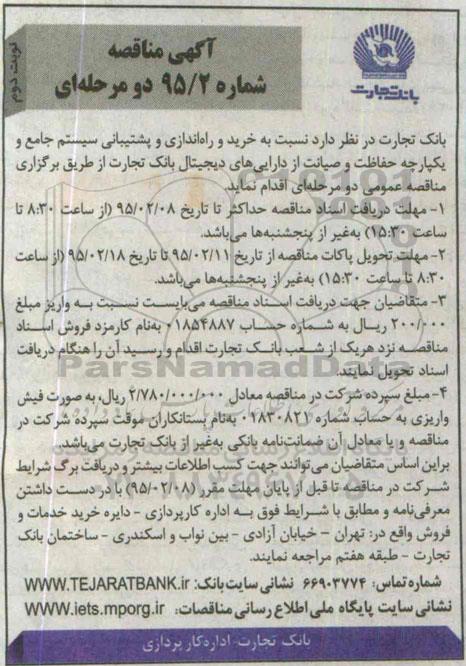 نوبت دوم
آگهی مناقصه
شماره ۹۵/۲ دو مرحله‌ای
بانک تجارت
بانک تجارت در نظر دارد نسبت به خرید و راه‌اندازی و پشتیبانی سیستم جامع و
یکپارچه حفاظت و صیانت از دارایی‌های دیجیتال بانک تجارت از طریق برگزاری
مناقصه عمومی دو مرحله‌ای اقدام نماید.
۱- مهلت دریافت اسناد مناقصه حداکثر تا تاریخ ۹۵/۰۲/۰۸ (از ساعت ۸:۳۰ تا
ساعت ۱۵:۳۰) به‌غیر از پنجشنبه‌ها می‌باشد.
۲- مهلت تحویل پاکات مناقصه از تاریخ ۹۵/۰۲/۱۱ تا تاریخ ۹۵/۰۲/۱۸ (از ساعت
۸:۳۰ تا ساعت ۱۵:۳۰) به‌غیر از پنجشنبه‌ها می‌باشد.
۳- متقاضیان جهت دریافت اسناد مناقصه می‌بایست نسبت به واریز مبلغ
۲۰۰/۰۰۰ ریال به شماره حساب ۰۱۸۵۴۸۸۷ به‌نام کارمزد فروش اسناد
مناقصه نزد هریک از شعب بانک تجارت اقدام و رسید آن را هنگام دریافت
اسناد تحویل نمایند.
۴- مبلغ سپرده شرکت در مناقصه معادل ۲/۷۸۰/۰۰۰/۰۰۰ ریال، به صورت فیش
واریزی به حساب شماره ۰۱۸۳۰۸۲۱ به‌نام بستانکاران موقت سپرده شرکت در
مناقصه و یا معادل آن ضمانت‌نامه بانکی به‌غیر از بانک تجارت می‌باشد.
براین اساس متقاضیان می‌توانند جهت کسب اطلاعات بیشتر و دریافت برگ شرایط
شرکت در مناقصه تا قبل از پایان مهلت مقرر (۹۵/۰۲/۰۸) با در دست داشتن
معرفی‌نامه و مطابق با شرایط فوق به اداره کارپردازی - دایره خرید خدمات و
فروش واقع در: تهران - خیابان آزادی - بین نواب و اسکندری - ساختمان بانک
تجارت - طبقه هفتم مراجعه نمایند.
شماره تماس: ۶۶۹۰۳۷۷۴ نشانی سایت بانک: WWW.TEJARATBANK.ir
نشانی سایت پایگاه ملی اطلاع رسانی مناقصات: WWW.iets.mporg.ir
بانک تجارت- اداره کارپردازی
ParsNamadData